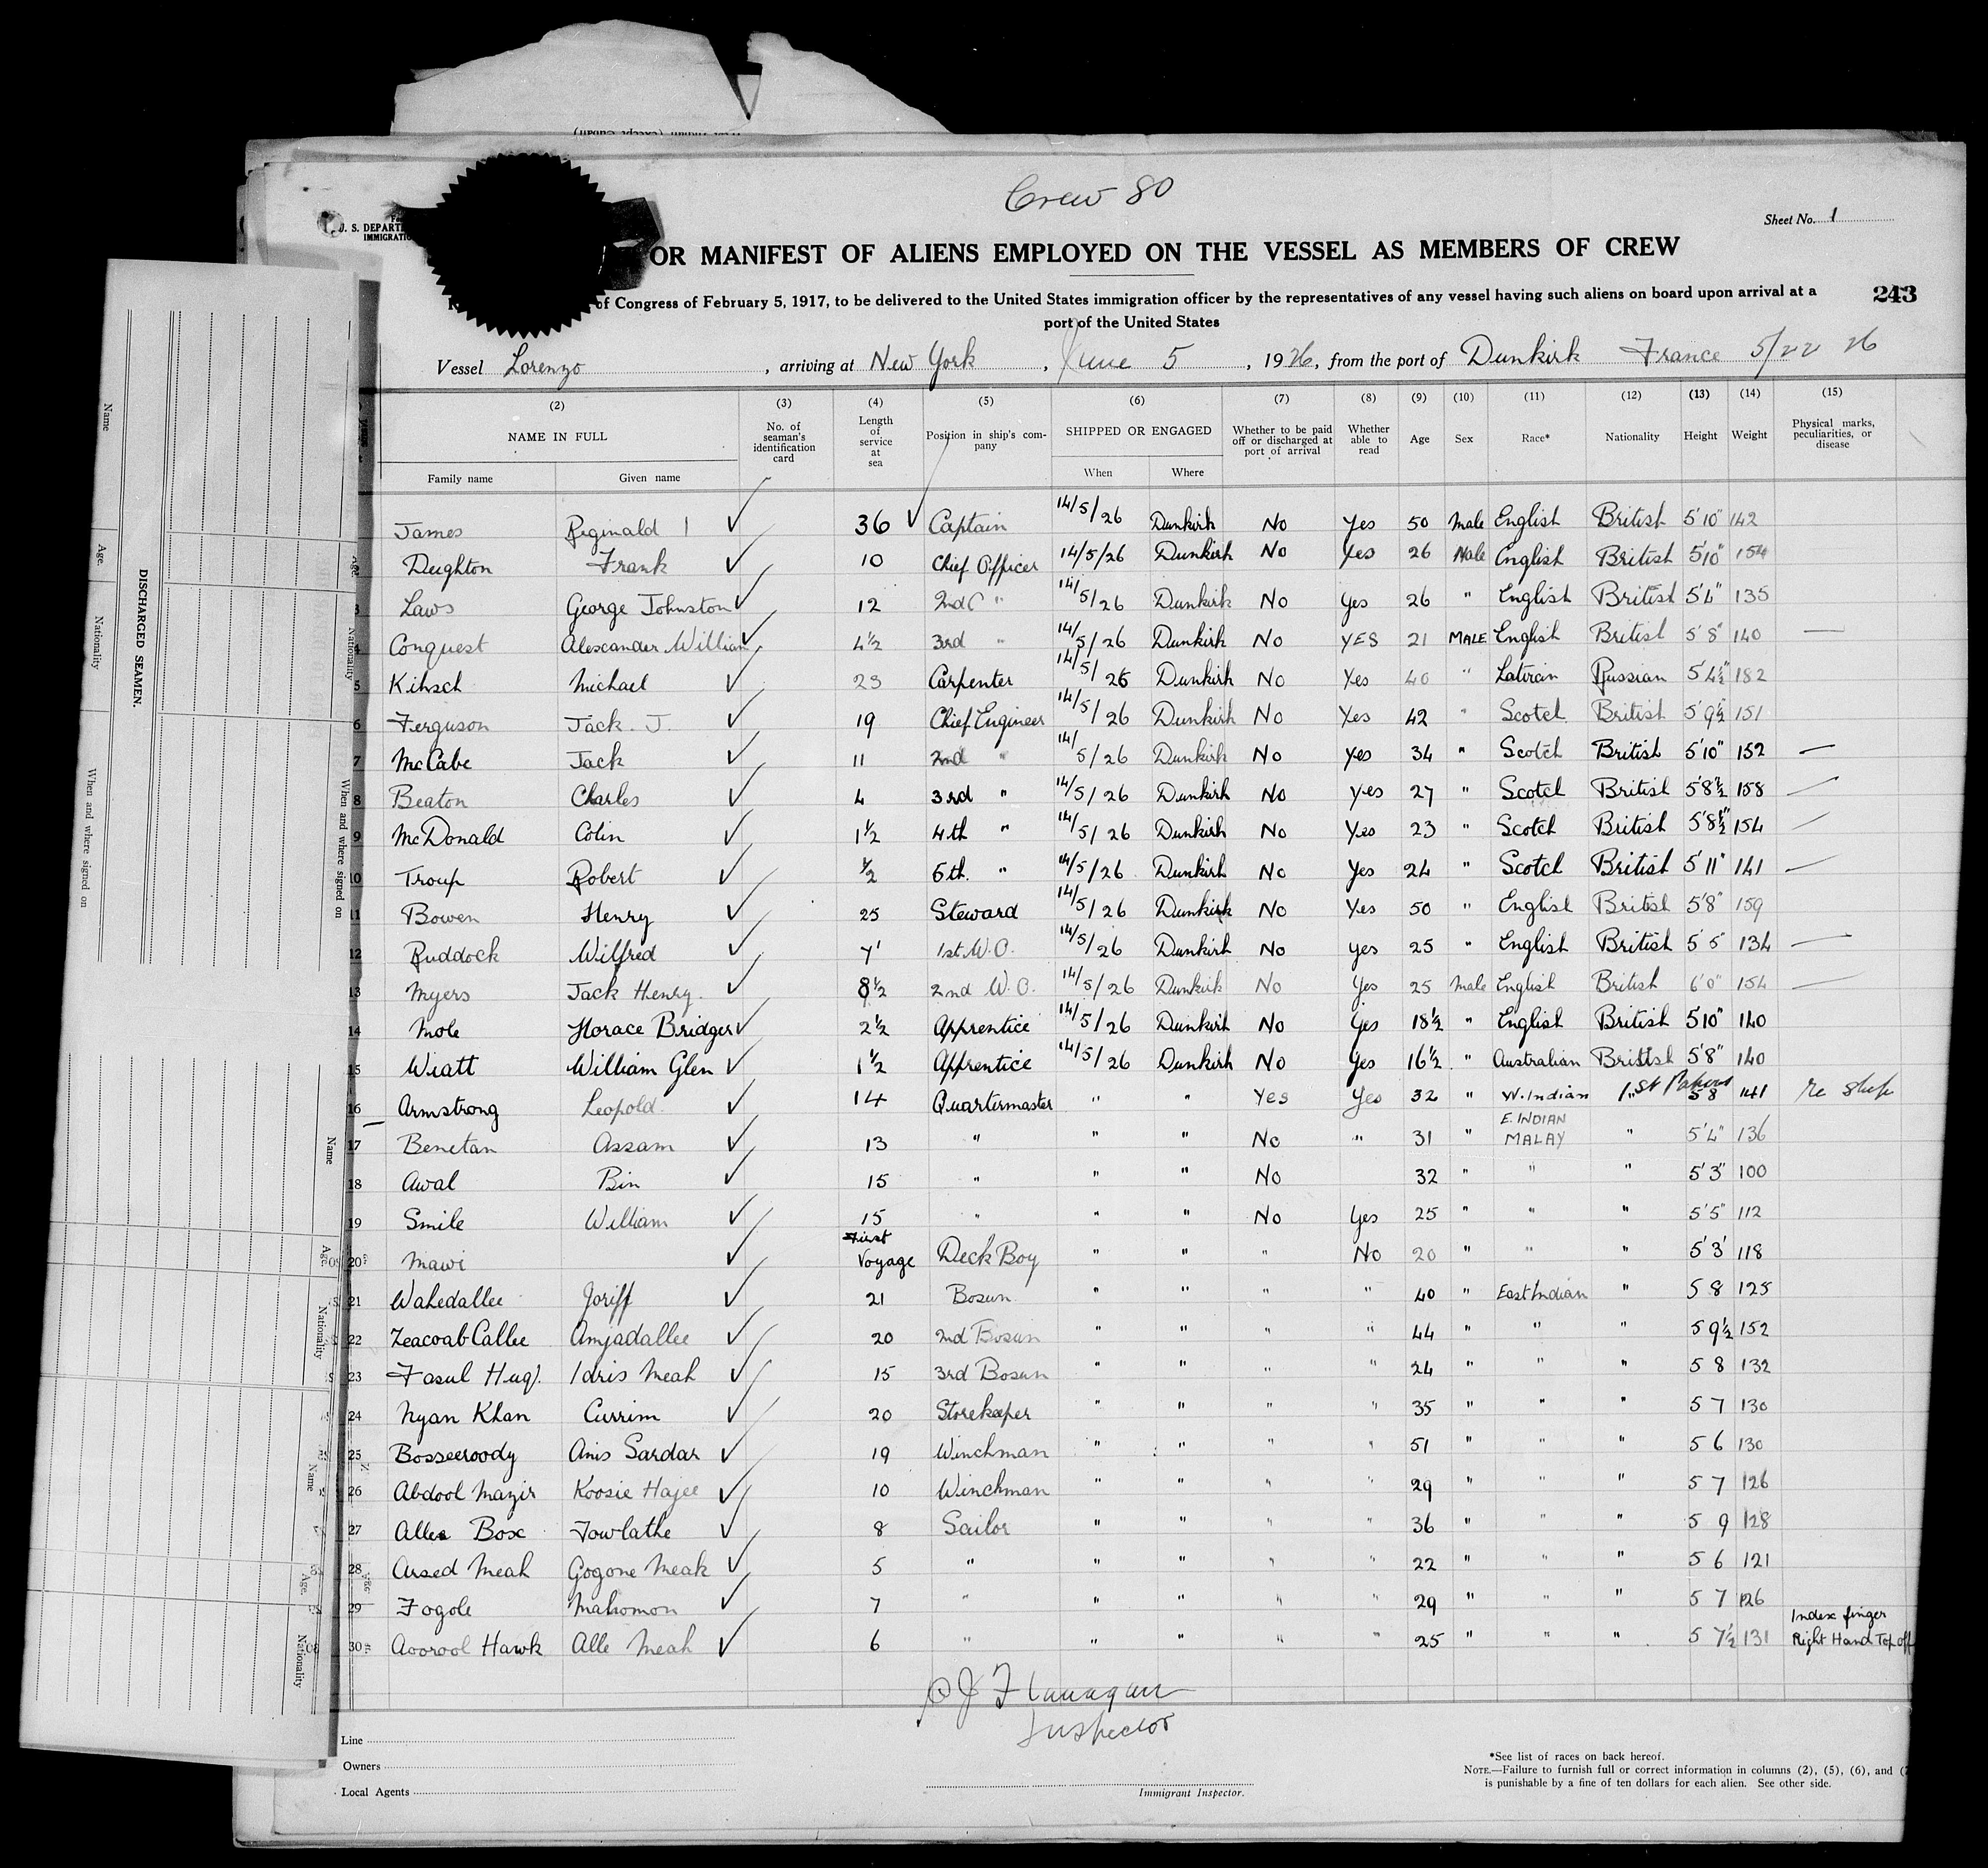 Crew 80
Sheet No. 1
U. S. DEPART
IMMIGRATIO
OR MANIFEST OF ALIENS EMPLOYED ON THE VESSEL AS MEMBERS OF CREW
243
of Congress of February 5, 1917, to be delivered to the United States immigration officer by the representatives of any vessel having such aliens on board upon arrival at a
port of the United States
Vessel Lorenzo, arriving at New York, June 5, 1926, from the port of Dunkirk France 5/22 26
(2) (3) (4) (5) (6) (7) (8) (9) (10) (11) (12) (13) (14) (15)
NAME IN FULL No. of seaman's identification card Length of service at sea Position in ship's company SHIPPED OR ENGAGED Whether to be paid off or discharged at port of arrival Whether able to read Age Sex Race* Nationality Height Weight Physical marks, peculiarities, or disease
Family name Given name When Where
James Reginald 1 36 Captain 14/5/26 Dunkirk No Yes 50 Male English British 5'10" 142
Deighton Frank 10 Chief Officer 14/5/26 Dunkirk No Yes 26 Male English British 5'10" 154
3 Laws George Johnston 12 2nd " 14/5/26 Dunkirk No Yes 26 " English British 5'4" 135
4 Conquest Alexander William 4½ 3rd " 14/5/26 Dunkirk No YES 21 MALE English British 5'8" 140 —
5 Kihsch Michael 23 Carpenter 14/5/26 Dunkirk No Yes 40 " Latvian Russian 5'4½" 182
6 Ferguson Jack. J. 19 Chief Engineer 14/5/26 Dunkirk No Yes 42 " Scotch British 5'9½ 151
7 McCabe Jack 11 2nd " 14/5/26 Dunkirk No Yes 34 " Scotch British 5'10" 152 —
8 Beaton Charles 4 3rd " 14/5/26 Dunkirk No Yes 27 " Scotch British 5'8½ 158 —
9 McDonald Colin 1½ 4th " 14/5/26 Dunkirk No Yes 23 " Scotch British 5'8½" 154 —
10 Troup Robert ½ 5th. " 14/5/26 Dunkirk No Yes 24 " Scotch British 5'11" 141 —
11 Bowen Henry 25 Steward 14/5/26 Dunkirk No Yes 50 " English British 5'8" 159
12 Ruddock Wilfred 7 1st W.O. 14/5/26 Dunkirk No Yes 25 " English British 5'5 134 —
13 Myers Jack Henry. 8½ 2nd W.O. 14/5/26 Dunkirk No Yes 25 Male English British 6'0" 154 —
14 Mole Horace Bridger 2½ Apprentice 14/5/26 Dunkirk No Yes 18½ " English British 5'10" 140
15 Wiatt William Glen 1½ Apprentice 14/5/26 Dunkirk No Yes 16½ " Australian British 5'8" 140
16 Armstrong Leopold 14 Quartermaster " " Yes Yes 32 " W. Indian " 5 8 141 re ship
17 Benetan Assam 13 " " " No " 31 " E. INDIAN MALAY " 5'4" 136
18 Awal Bin 15 " " " No 32 " " " 5'3" 100
19 Smile William 15 " " " No Yes 25 " " " 5'5" 112
20 Mawi First Voyage Deck Boy " " " No 20 " " " 5'3' 118
21 Wahedallee Joriff 21 Bosun " " " " 40 " East Indian " 5 8 125
22 Zeacoab Callee Amjadallee 20 2nd Bosun " " " " 44 " " " 5 9½ 152
23 Fasul Huq. Idris Meah 15 3rd Bosun " " " " 24 " " " 5 8 132
24 Nyan Khan Currim 20 Storekeeper " " " " 35 " " " 5 7 130
25 Bosseeroody Anis Sardar 19 Winchman " " " " 51 " " " 5 6 130
26 Abdool Mazir Koosie Hajee 10 Winchman " " " " 29 " " " 5 7 126
27 Allea Box Towlathe 8 Sailor " " " " 36 " " " 5 9 128
28 Arsed Meah Gogone Meah 5 " " " " " 22 " " " 5 6 121
29 Fogole Mahomon 7 " " " " " 29 " " " 5 7 126
30 Aoorool Hawk Alle Meah 6 " " " " " 25 " " " 5 7½ 131 Index finger Right Hand Top off
Flanagan
Inspector
Line
Owners
Local Agents
Immigrant Inspector.
*See list of races on back hereof.
NOTE.—Failure to furnish full or correct information in columns (2), (5), (6), and (7
is punishable by a fine of ten dollars for each alien. See other side.
Name
Age.
Nationality
When and where signed on
DISCHARGED SEAMEN.
Nationality
When and where signed on
Name
Age
Nationality
Name
Age.
Nationality